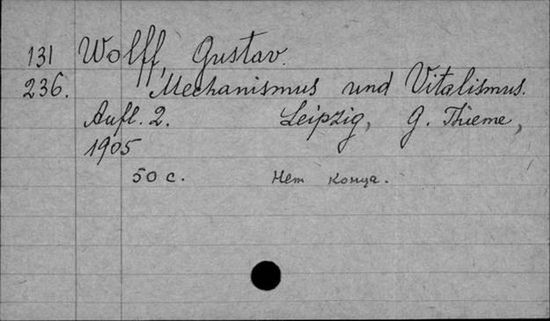 131 Wolff, Gustav.
236. Mechanismus und Vitalismus.
Aufl. 2. Leipzig, G. Thieme,
1905
50 с. Нет конца.